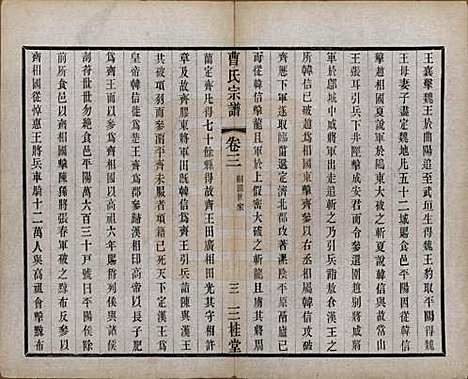 王襄擊魏王於曲陽追至武垣生得魏王豹取平陽得魏
王母妻子盡定魏地凡五十二城賜食邑平陽因從韓信
擊趙相國夏說軍於鄔東大破之斬夏說韓信與故常山
王張耳引兵下井陘擊成安君而令參還圍趙別將戚將
軍於鄔城中戚將軍出走追斬之乃引兵詣敖倉漢王之
所韓信已破趙為相國東擊齊參以右丞相屬韓信攻破
齊歷下軍遂取臨菑還定濟北郡攻著漯陰平原鬲盧已
而從韓信擊龍且軍於上假密大破之斬龍且虜其將軍
周
曹氏宗譜
卷三
相國世家
三
三桂堂
蘭定齊凡得七十餘縣得故齊王田廣相田光其守相許
章及故齊膠東將軍田既韓信為齊王引兵詣陳與漢王
共破項羽而參留平齊未服者項籍已死天下定漢王為
皇帝韓信徙為楚王齊為郡參歸漢相印高帝以長子肥
為齊王而以參為齊相國以高祖六年賜爵列侯與諸侯
剖符世世勿絕食邑平陽萬六百三十戶號曰平陽侯除
前所食邑以齊相國擊陳豨將張春軍破之黥布反參以
齊相國從悼惠王將兵車騎十二萬人與高祖會擊黥布